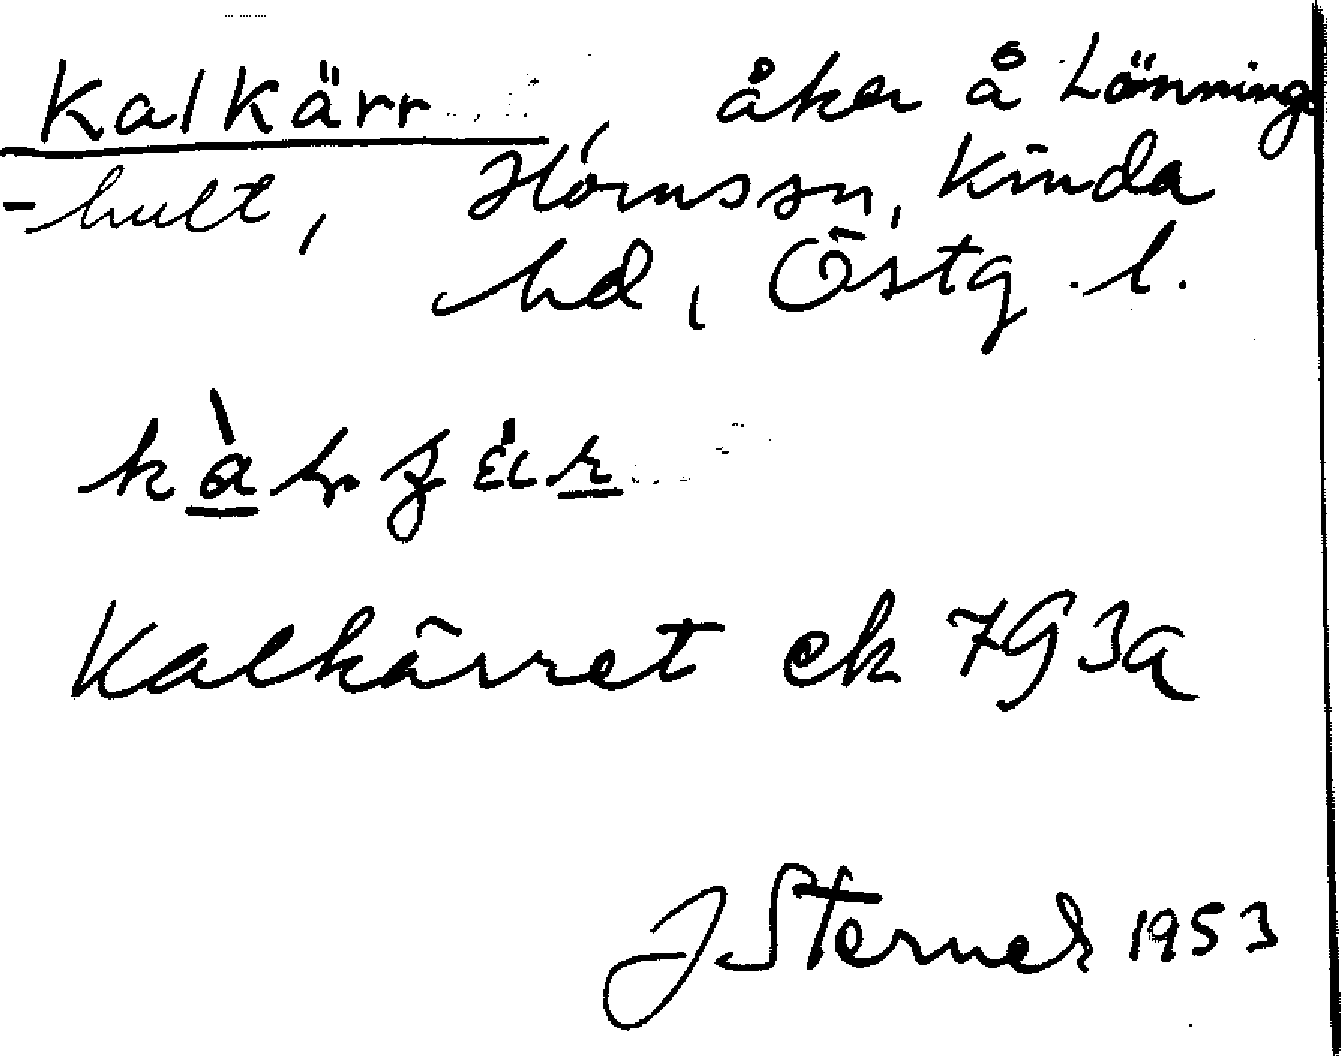 Kalkärr, åker å Lönninge
-hult, Hörnssn, Kinda
hd, Östg.l.
Kalkärret ek 793a
J Sterner 1953